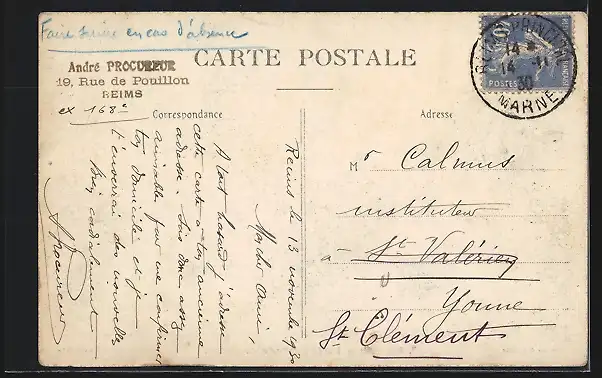 Faire suivre en cas d'absence
CARTE POSTALE
André PROCUREUR
19, Rue de Pouillon
REIMS
ex 168e
Correspondance
Adresse
REIMS PRINCIPAL
14 *
14 -11
30
MARNE
POSTES
Reims le 13 novembre 1930
Mon cher Ami,
A tout hasard j'adresse
cette carte à ton ancienne
adresse. Sois donc assez
aimable pour me confirmer
ton domicile et je
t'enverrai des nouvelles
Bien cordialement
A Procureur
Mr Calmus
instituteur
à St Valérien
Yonne
St Clément